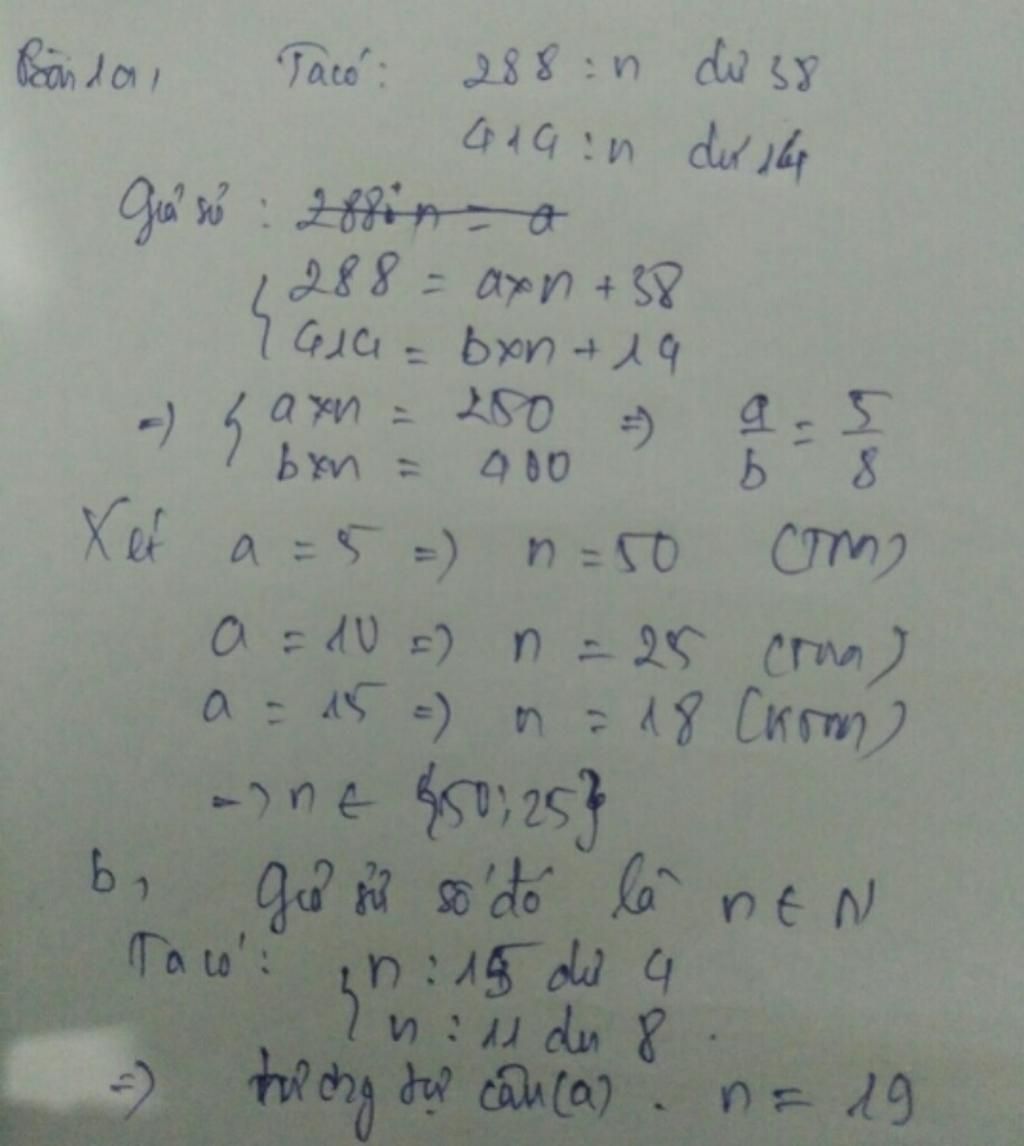 Bài 1a, Ta có: 288 : n dư 38
414 : n dư 14
Giả sử : 288 : n = a
{ 288 = a×n + 38
414 = b×n + 14
=> { a×n = 250 => a/b = 5/8
b×n = 400
Xét a = 5 => n = 50 (TM)
a = 10 => n = 25 (TM)
a = 15 => n = 18 (KTM)
=> n ∈ {50; 25}
b, Giả sử số đó là n ∈ N
Ta có: { n : 15 dư 4
n : 11 dư 8 .
=> tương tự câu (a) . n = 19